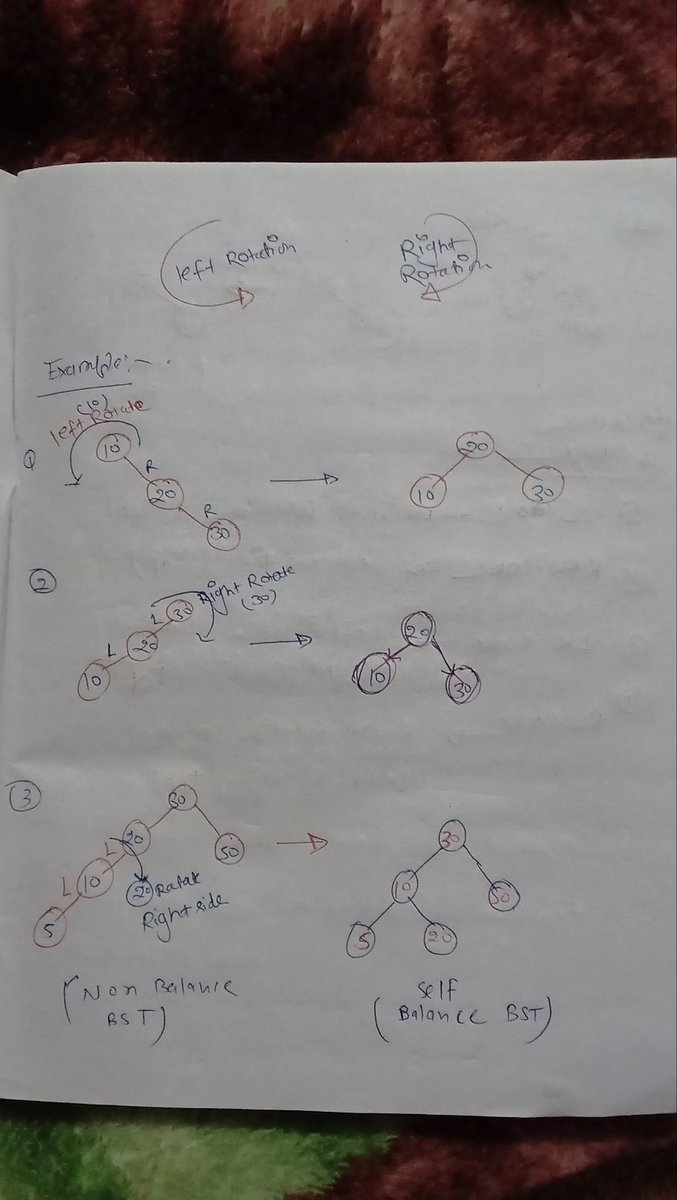 left Rotation
Right
Rotation
Example:-
(10)
left Rotate
1
10
R
20
R
30
20
10
30
2
Right Rotate
(30)
30
L
20
L
10
20
10
30
3
30
20
L
50
10
L
20 Ratat
Right side
5
30
10
50
5
20
(Non Balance
BST)
self
(Balance BST)